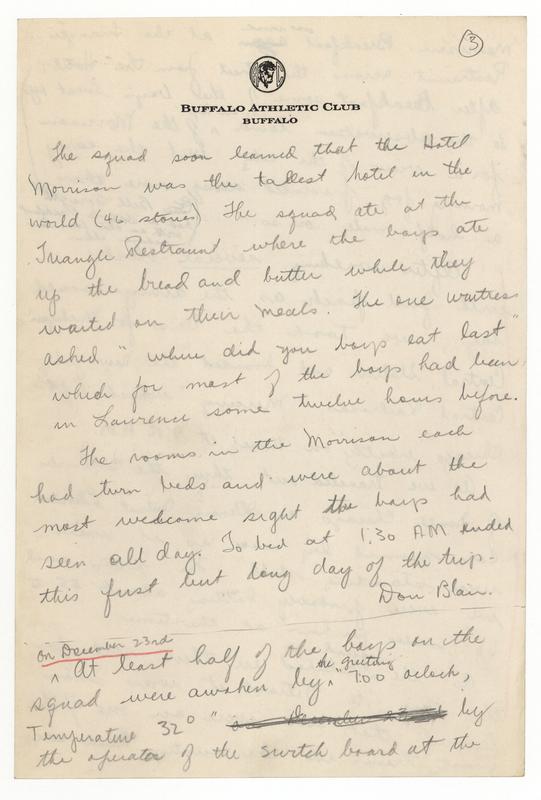 3
BUFFALO ATHLETIC CLUB
BUFFALO
The squad soon learned that the Hotel
Morrison was the tallest hotel in the
world (46 stories) The squad ate at the
Triangle Restraunt where the boys ate
up the bread and butter while they
waited on their meals. The one waitress
asked " where did you boys eat last"
which for most of the boys had been
in Lawrence some twelve hours before.
The rooms in the Morrison each
had turn beds and were about the
most welcome sight the boys had
seen all day. To bed at 1:30 AM ended
this first but long day of the trip-
Don Blair.
on December 23rd
^ At least half of the boys on the
the greeting
squad were awaken by ^ "7:00 oclock,
Temperature 32° " by
the operator of the switch board at the